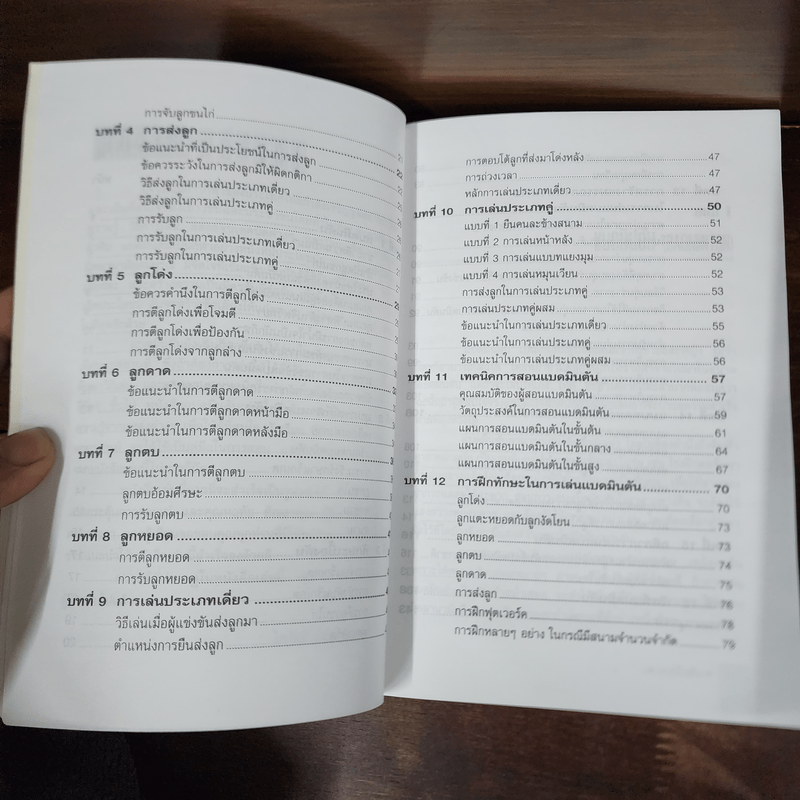 การจับลูกขนไก่
บทที่ 4 การส่งลูก
ข้อแนะนำที่เป็นประโยชน์ในการส่งลูก
ข้อควรระวังในการส่งลูกมิให้ผิดกติกา
วิธีส่งลูกในการเล่นประเภทเดี่ยว
วิธีส่งลูกในการเล่นประเภทคู่
การรับลูก
การรับลูกในการเล่นประเภทเดี่ยว
การรับลูกในการเล่นประเภทคู่
บทที่ 5 ลูกโด่ง
ข้อควรคำนึงในการตีลูกโด่ง
การตีลูกโด่งเพื่อโจมตี
การตีลูกโด่งเพื่อป้องกัน
การตีลูกโด่งจากลูกล่าง
บทที่ 6 ลูกดาด
ข้อแนะนำในการตีลูกดาด
ข้อแนะนำในการตีลูกดาดหน้ามือ
ข้อแนะนำในการตีลูกดาดหลังมือ
บทที่ 7 ลูกตบ
ข้อแนะนำในการตีลูกตบ
ลูกตบอ้อมศีรษะ
การรับลูกตบ
บทที่ 8 ลูกหยอด
การตีลูกหยอด
การรับลูกหยอด
บทที่ 9 การเล่นประเภทเดี่ยว
วิธีเล่นเมื่อผู้แข่งขันส่งลูกมา
ตำแหน่งการยืนส่งลูก
การตอบโต้ลูกที่ส่งมาโด่งหลัง 47
การถ่วงเวลา 47
หลักการเล่นประเภทเดี่ยว 47
บทที่ 10 การเล่นประเภทคู่ 50
แบบที่ 1 ยืนคนละข้างสนาม 51
แบบที่ 2 การเล่นหน้าหลัง 52
แบบที่ 3 การเล่นแบบทแยงมุม 52
แบบที่ 4 การเล่นหมุนเวียน 52
การส่งลูกในการเล่นประเภทคู่ 53
การเล่นประเภทคู่ผสม 53
ข้อแนะนำในการเล่นประเภทเดี่ยว 55
ข้อแนะนำในการเล่นประเภทคู่ 56
ข้อแนะนำในการเล่นประเภทคู่ผสม 56
บทที่ 11 เทคนิคการสอนแบดมินตัน 57
คุณสมบัติของผู้สอนแบดมินตัน 57
วัตถุประสงค์ในการสอนแบดมินตัน 59
แผนการสอนแบดมินตันในขั้นต้น 61
แผนการสอนแบดมินตันในขั้นกลาง 64
แผนการสอนแบดมินตันในขั้นสูง 67
บทที่ 12 การฝึกทักษะในการเล่นแบดมินตัน 70
ลูกโด่ง 70
ลูกแตะหยอดกับลูกงัดโยน 73
ลูกหยอด 73
ลูกตบ 74
ลูกดาด 75
การส่งลูก 76
การฝึกฟุตเวอร์ค 78
การฝึกหลายๆ อย่าง ในกรณีมีสนามจำนวนจำกัด 79